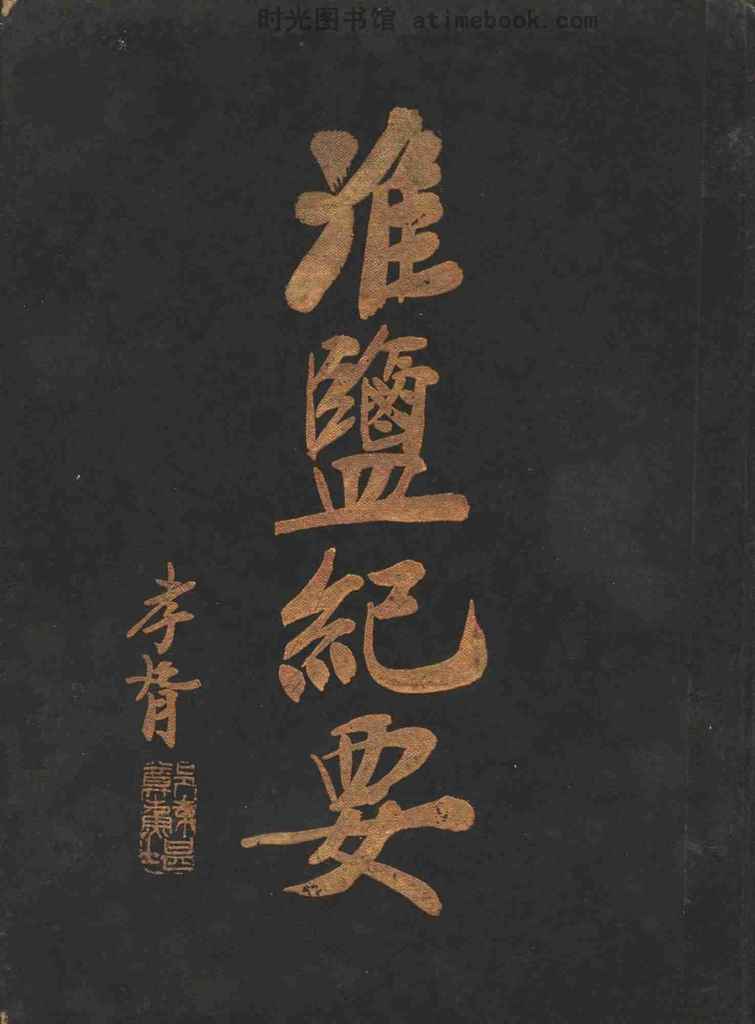 时光图书馆 atimebook.com
淮鹽紀要
孝胥